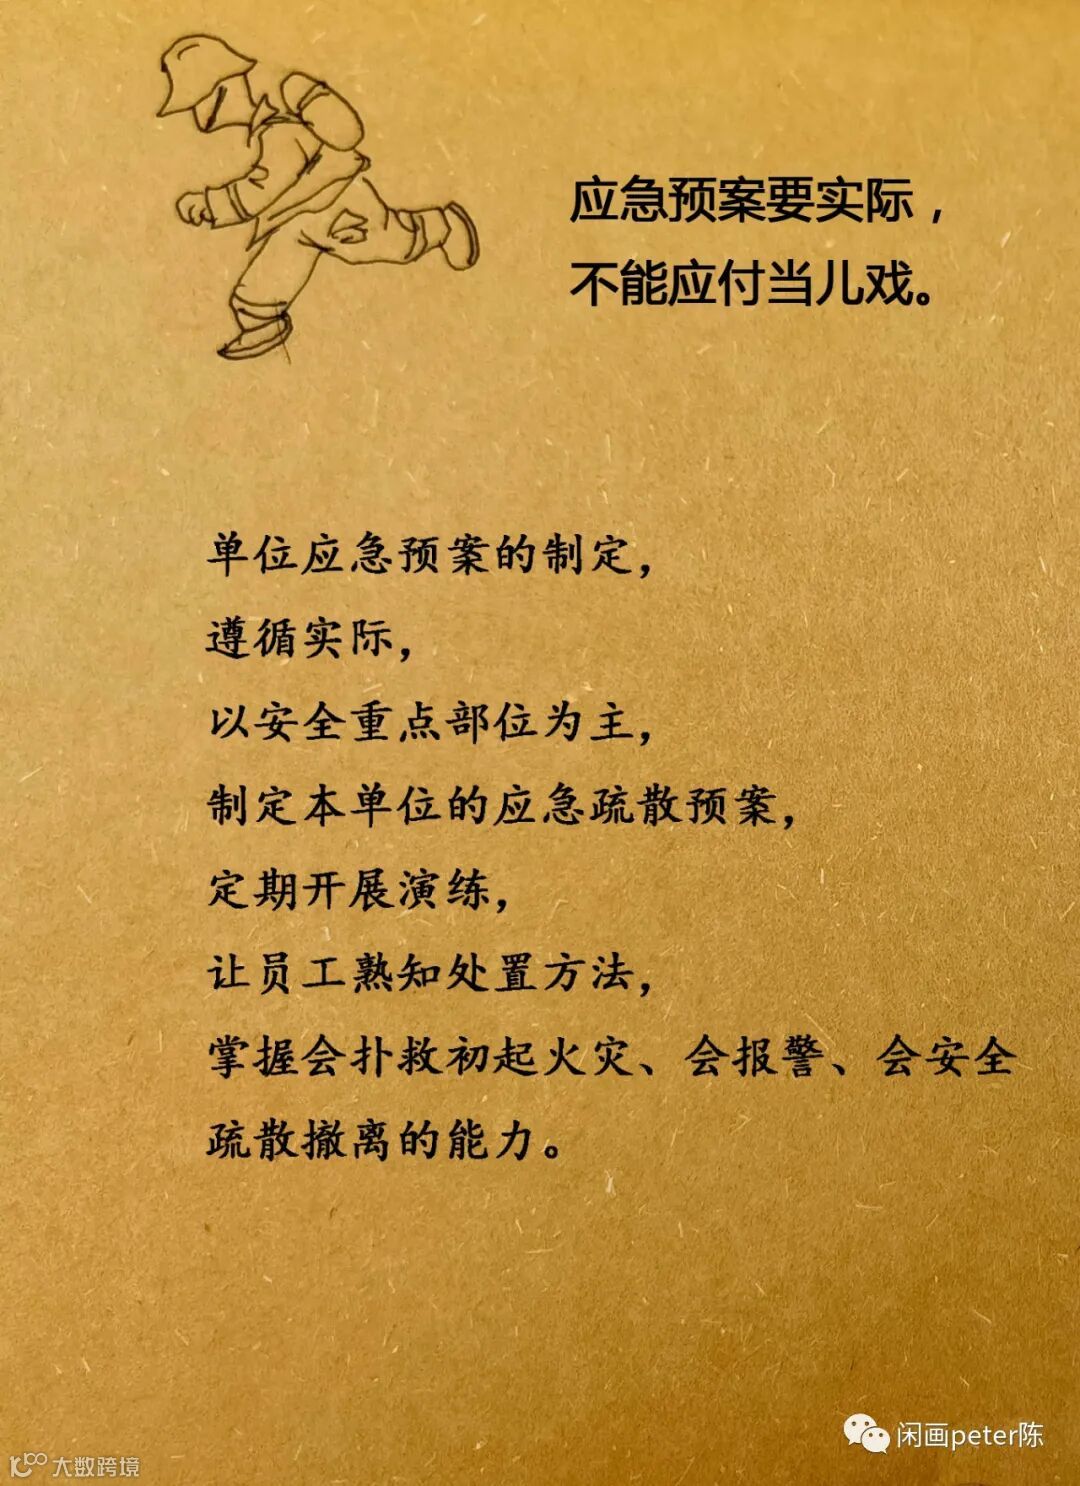 应急预案要实际，
不能应付当儿戏。
单位应急预案的制定，
遵循实际，
以安全重点部位为主，
制定本单位的应急疏散预案，
定期开展演练，
让员工熟知处置方法，
掌握会扑救初起火灾、会报警、会安全
疏散撤离的能力。
闲画peter陈
大数跨境